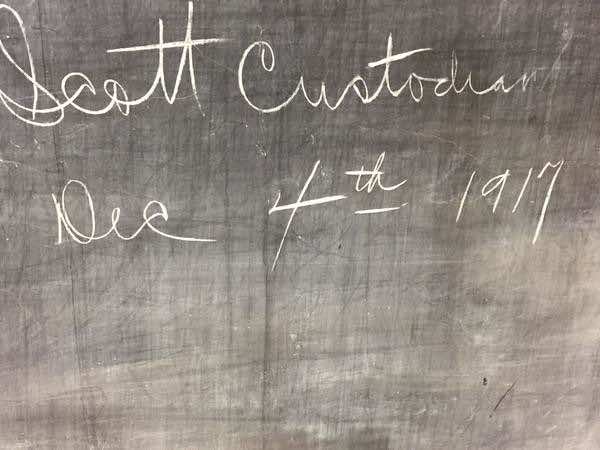 Scott Custodian
Dec 4th 1917